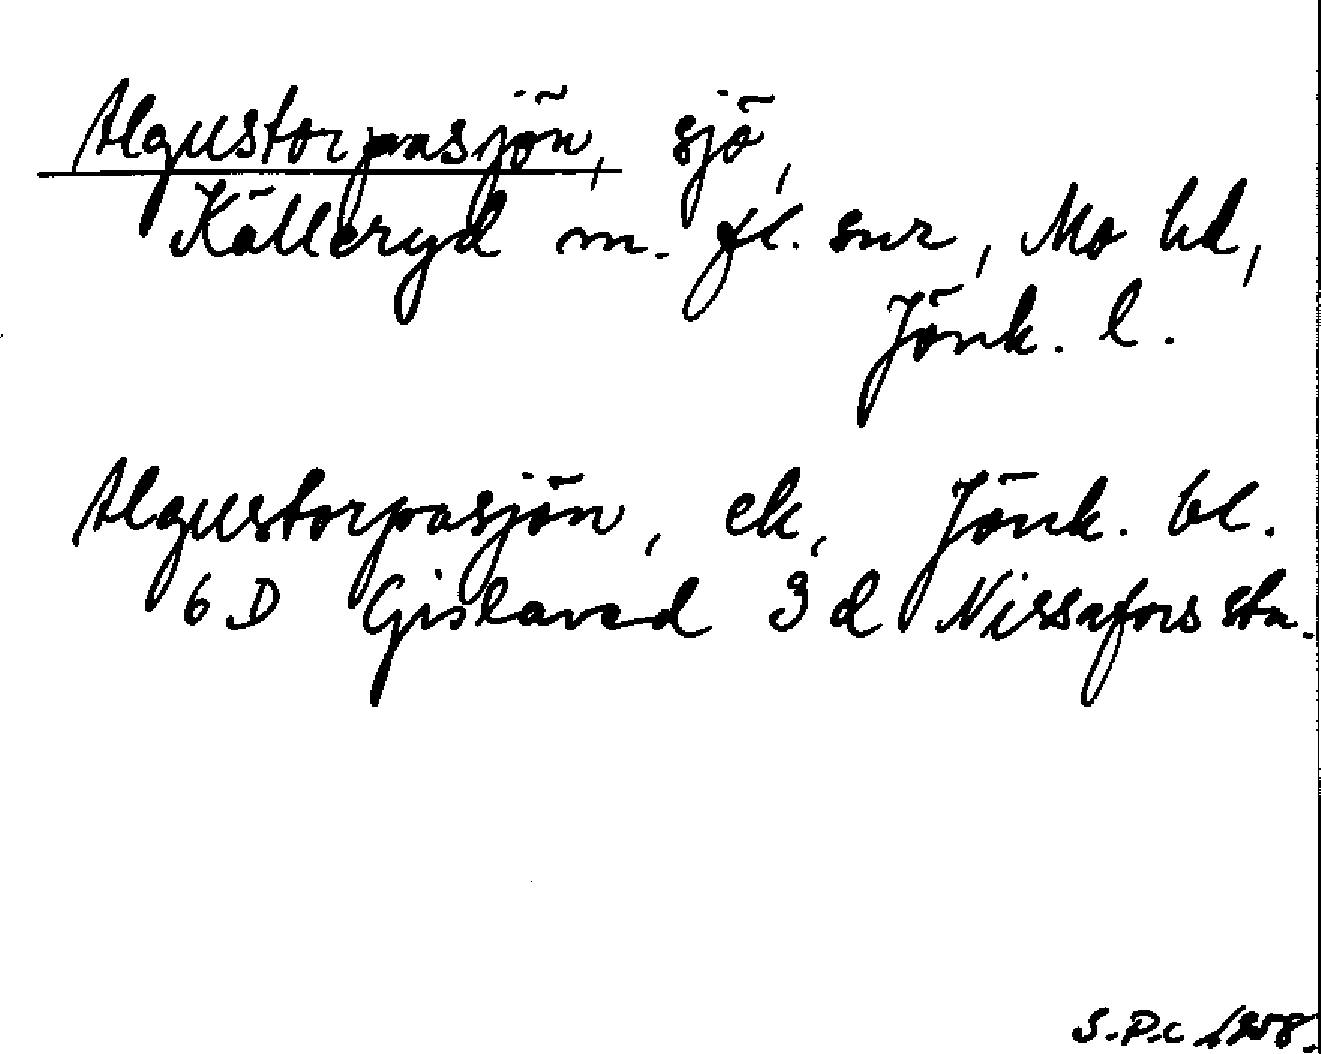 Algustorpasjön, sjö,
Källeryd m. fl. snr, Mo hd,
Jönk. l.
Algustorpasjön, ek, Jönk. bl.
6 D Gislaved 3 d Nissafors stn.
S.P.C 1958.